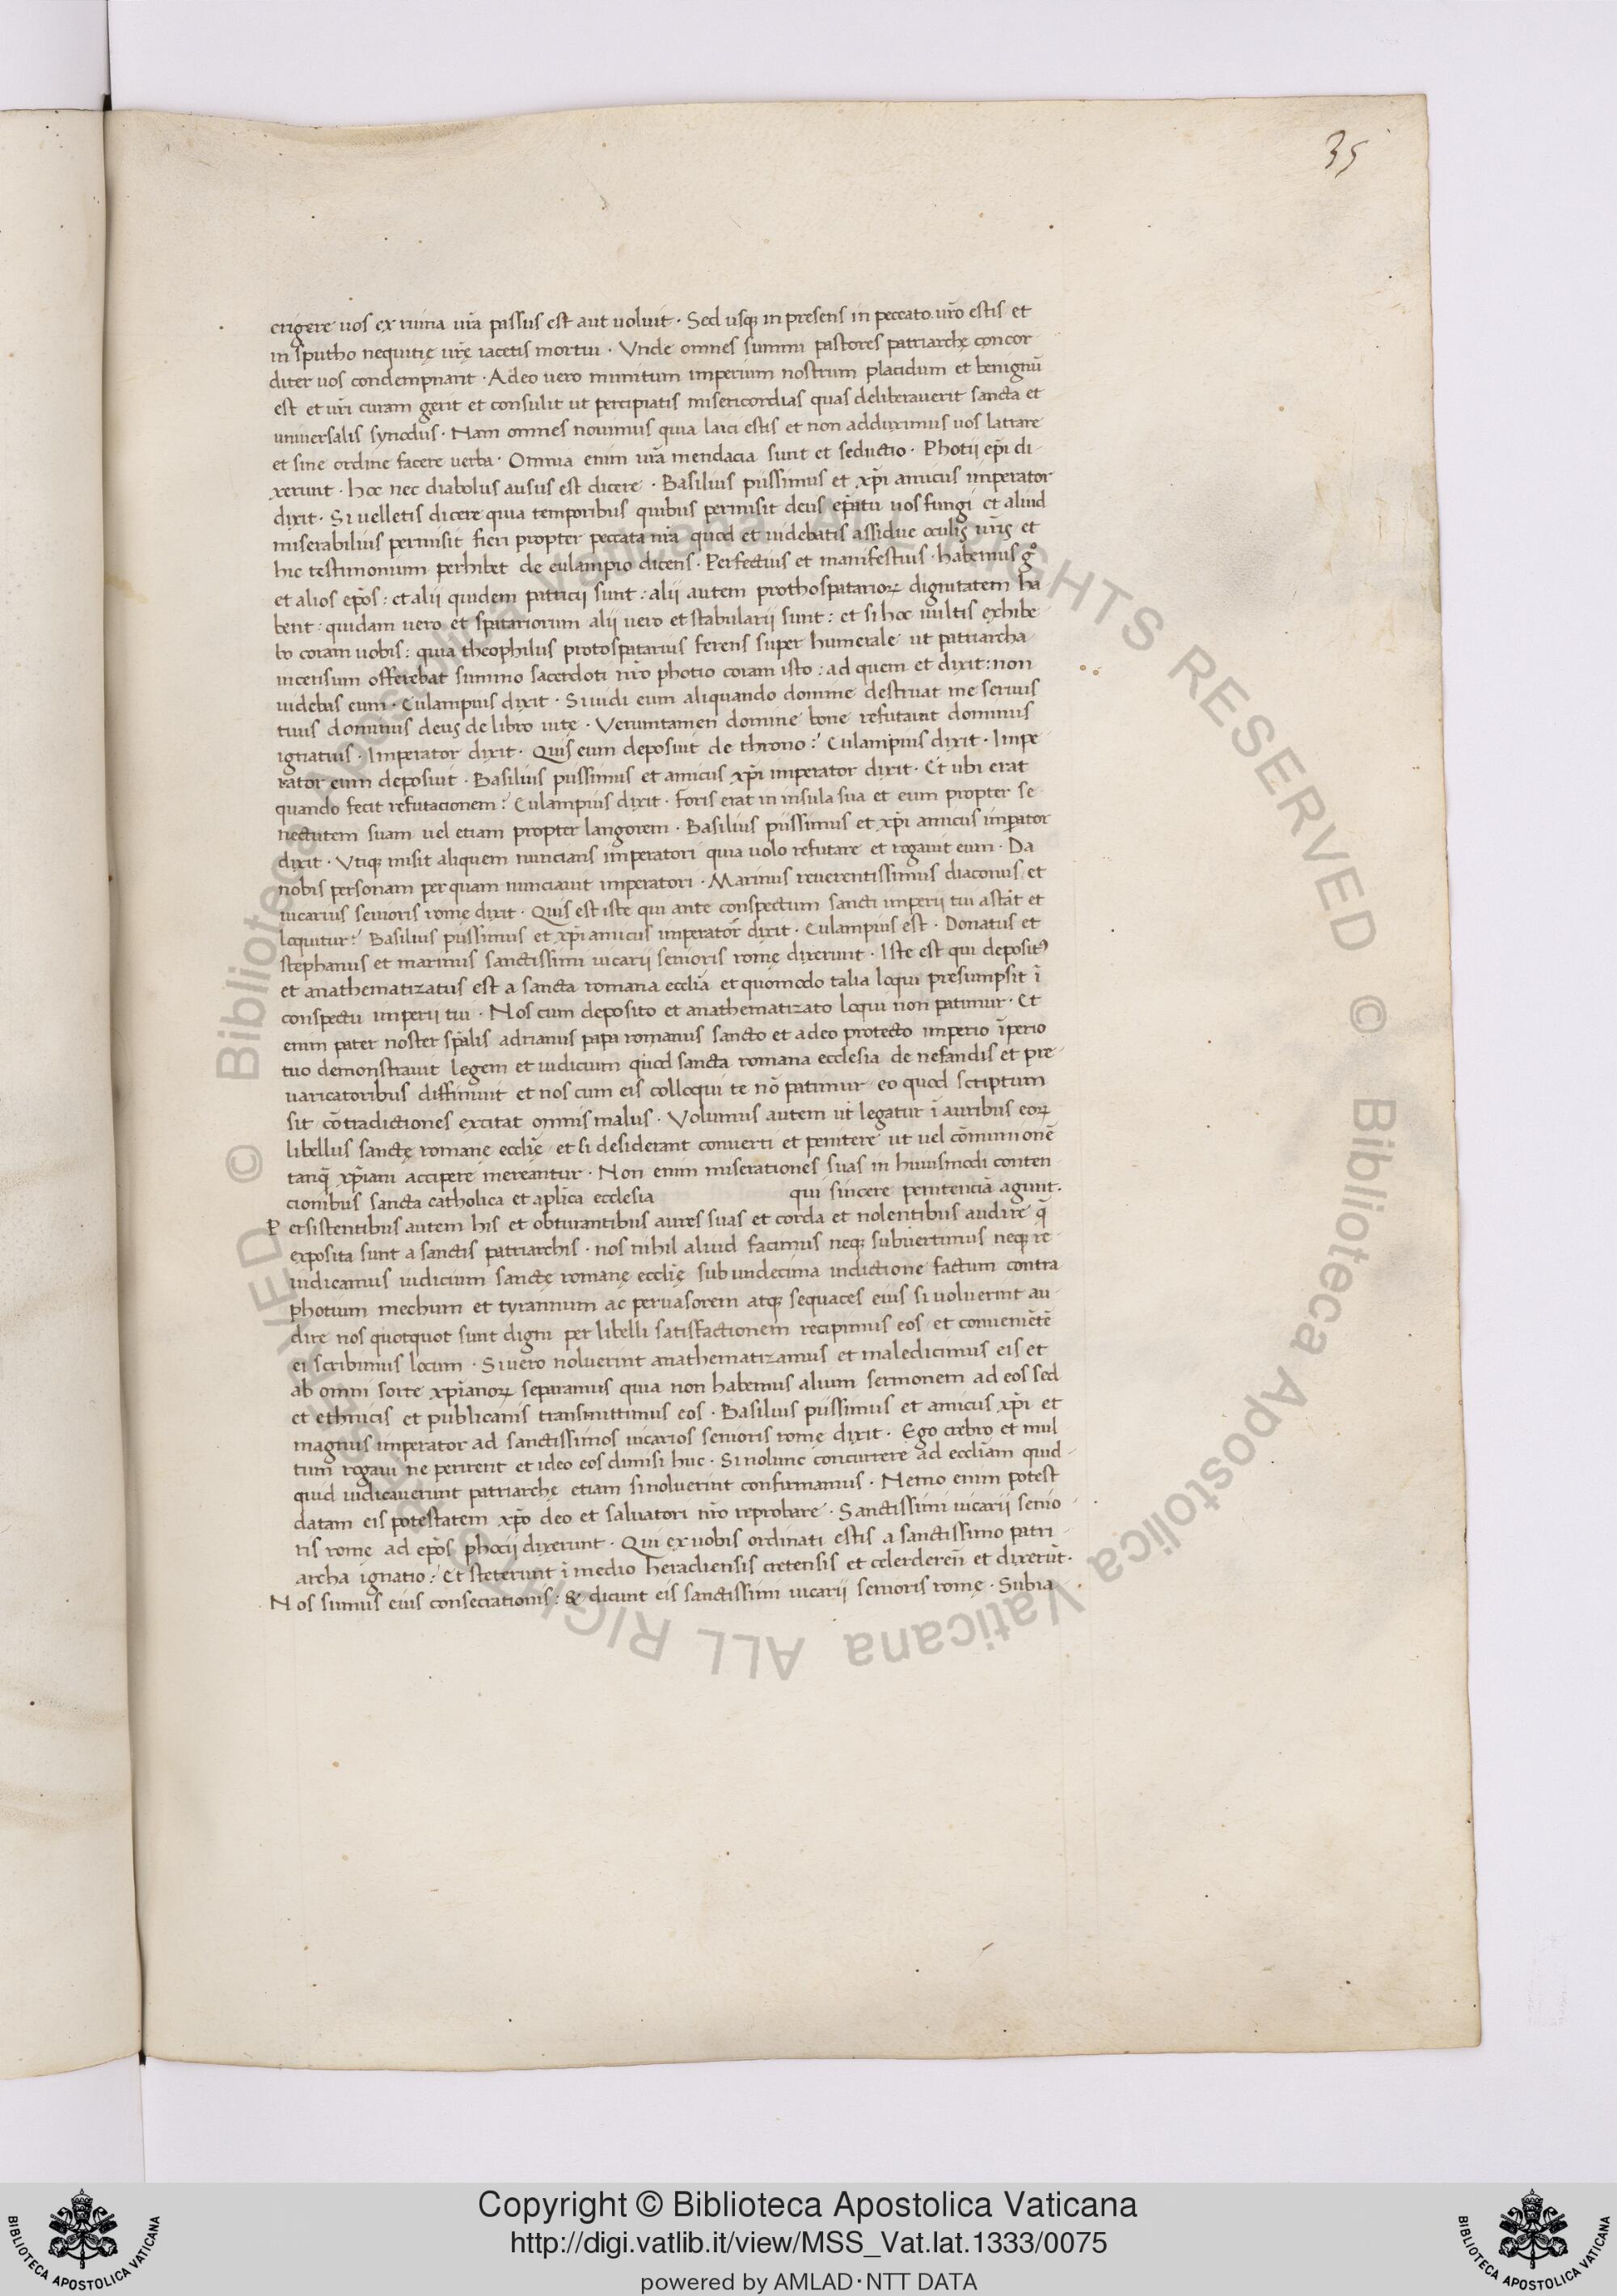 35
erigere uos ex ruina ur̄a passus est aut uoluit · Sed usq; in presens in peccato ur̄o estis et
in sputho nequitię ur̄ę iacetis mortui · Vnde omnes summi pastores patriarchę concor
diter uos condempnant · Adeo uero munitum imperium nostrum placidum et benignū
est et ur̄i curam gerit et consulit ut percipiatis misericordias quas deliberauerit sancta et
uniuersalis synodus · Nam omnes nouimus quia laici estis et non adduximus uos latrare
et sine ordine facere uerba · Omnia enim ur̄a mendacia sunt et seductio · Photii ep̄i di-
xerunt · hoc nec diabolus ausus est dicere · Basilius piissimus et xp̄i amicus imperator
dixit · Si uelletis dicere quia temporibus quibus permisit deus ep̄atu uos fungi et aliud
miserabilius permisit fieri propter peccata nr̄a quod et uidebatis assidue oculis ur̄is et
hic testimonium perhibet de eulampio dicens · Perfectius et manifestius · habemus gº
et alios ep̄os : et alii quidem patricii sunt : alii autem prothospatarioꝝ dignitatem ha
bent : quidam uero et spatariorum alii uero et stabularii sunt : et si hoc uultis exhibe
bo coram uobis : quia theophilus protospatarius ferens super humerale ut patriarcha
incensum offerebat summo sacerdoti nr̄o photio coram isto : ad quem et dixit : non
uidebas eum · Eulampius dixit · Si uidi eum aliquando domine destruat me seruus
tuus dominus deus de libro uitę · Veruntamen domine bone refutauit dominus
ignatius · Imperator dixit · Quis eum deposuit de throno ? Eulampius dixit · Impe
rator eum deposuit · Basilius piissimus et amicus xp̄i imperator dixit · Et ubi erat
quando fecit refutacionem ? Eulampius dixit · foris erat in insula sua et eum propter se
nectutem suam uel etiam propter langorem · Basilius piissimus et xp̄i amicus imp̄ator
dixit · Vtiq; misit aliquem nuncians imperatori quia uolo refutare et rogauit eum · Da
nobis personam per quam nunciauit imperatori · Marinus reuerentissimus diaconus et
uicarius senioris romę dixit · Quis est iste qui ante conspectum sancti imperii tui astat et
loquitur ? Basilius piissimus et xp̄i amicus imperator dixit · Eulampius est · Donatus et
stephanus et marinus sanctissimi uicarii senioris romę dixerunt · Iste est qui depositꝰ
et anathematizatus est a sancta romana eccl̄ia et quomodo talia loqui presumpsit ī
conspectu imperii tui · Nos cum deposito et anathematizato loqui non patimur · Et
enim pater noster sp̄alis adrianus papa romanus sancto et adeo protecto imperio īperio
tuo demonstrauit legem et iudicium quod sancta romana ecclesia de nefandis et pre
uaricatoribus diffiniuit et nos cum eis colloqui te nō patimur eo quod scriptum
sit cōtradictiones excitat omnis malus · Volumus autem ut legatur ī auribus eoꝝ
libellus sanctę romanę eccl̄ię et si desiderant conuerti et penitere ut uel cōmunionē
tanq̄ xp̄iani accipere mereantur · Non enim miserationes suas in huiusmodi conten
cionibus sancta catholica et apl̄ica ecclesia qui sincere penitenciā agunt.
Persistentibus autem his et obturantibus aures suas et corda et nolentibus audire q̄
exposita sunt a sanctis patriarchis · nos nihil aliud facimus neq; subuertimus neq; re
iudicamus iudicium sanctę romanę eccl̄ię sub undecima indictione factum contra
photium mechum et tyrannum ac peruasorem atq; sequaces eius si uoluerint au
dire nos quotquot sunt digni per libelli satisfactionem recipimus eos et conueniētē
ei scribimus locum · Si uero noluerint anathematizamus et maledicimus eis et
ab omni sorte xp̄ianoꝝ separamus quia non habemus alium sermonem ad eos sed
et ethnicis et publicanis transmittimus eos · Basilius piissimus et amicus xp̄i et
magnus imperator ad sanctissimos uicarios senioris romę dixit · Ego crebro et mul
tum rogaui ne perirent et ideo eos dimisi huc · Si nolunt concurrere ad eccl̄iam quid-
quid iudicauerunt patriarchę etiam si noluerint confirmamus · Nemo enim potest
datam eis potestatem xp̄o deo et saluatori nr̄o reprobare · Sanctissimi uicarii senio
ris romę ad ep̄os phocii dixerunt · Qui ex uobis ordinati estis a sanctissimo patri-
archa ignatio ? Et steterunt ī medio heracliensis cretensis et celerderen̄ et dixerūt.
Nos sumus eius consecrationis : & dicunt eis sanctissimi uicarii senioris romę · Subia
© Biblioteca Apostolica Vaticana ALL RIGHTS RESERVED © Biblioteca Apostolica Vaticana ALL RIGHTS RESERVED
Copyright © Biblioteca Apostolica Vaticana
http://digi.vatlib.it/view/MSS_Vat.lat.1333/0075
powered by AMLAD·NTT DATA
BIBLIOTECA APOSTOLICA VATICANA
BIBLIOTECA APOSTOLICA VATICANA